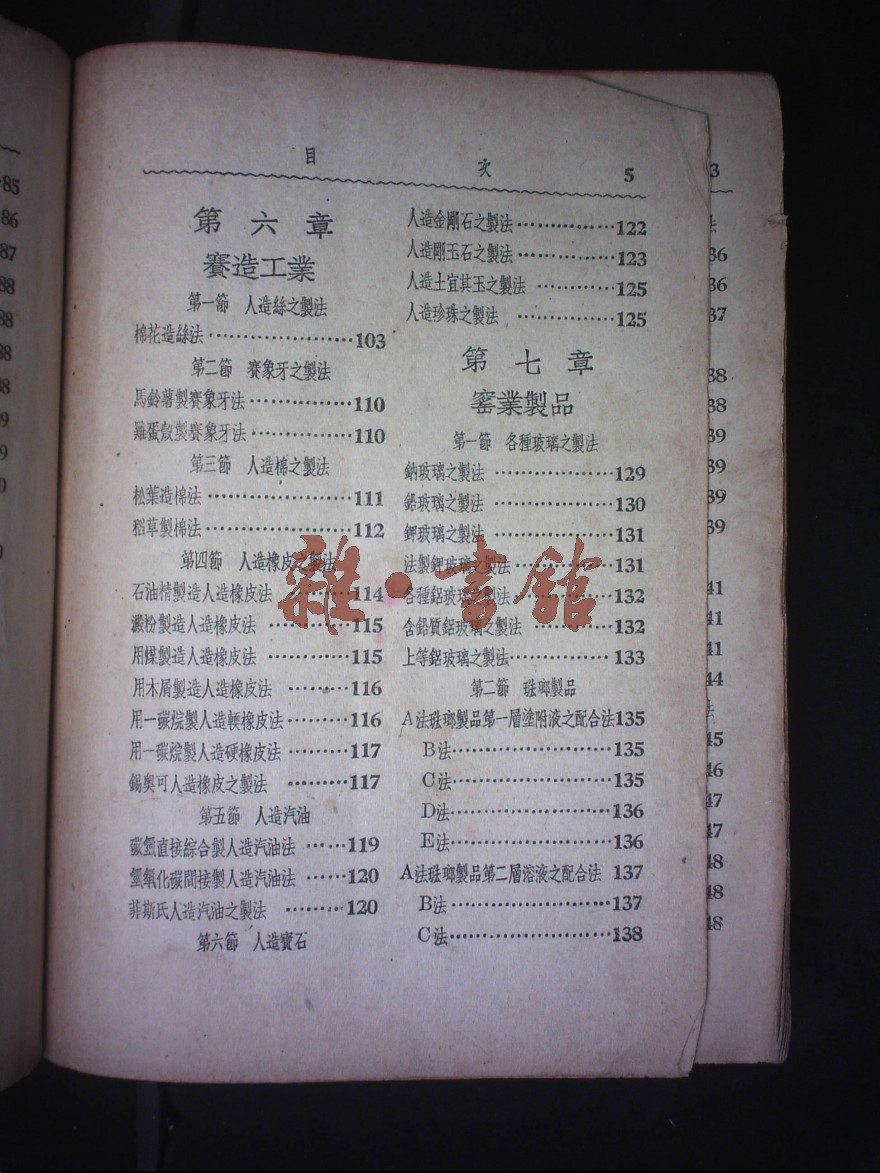 目 次 5
第六章
賽造工業
第一節 人造絲之製法
棉花造絲法 103
第二節 賽象牙之製法
馬鈴薯製賽象牙法 110
雞蛋殼製賽象牙法 110
第三節 人造棉之製法
松葉造棉法 111
稻草製棉法 112
第四節 人造橡皮之製法
石油精製造人造橡皮法 114
澱粉製造人造橡皮法 115
用煤製造人造橡皮法 115
用木屑製造人造橡皮法 116
用一碳烷製人造輭橡皮法 116
用一碳烷製人造硬橡皮法 117
錫奥可人造橡皮之製法 117
第五節 人造汽油
碳氫直接綜合製人造汽油法 119
氫氧化碳間接製人造汽油法 120
菲斯氏人造汽油之製法 120
第六節 人造寶石
人造金剛石之製法 122
人造剛玉石之製法 123
人造土宜其玉之製法 125
人造珍珠之製法 125
第七章
窰業製品
第一節 各種玻璃之製法
鈉玻璃之製法 129
鉛玻璃之製法 130
鉀玻璃之製法 131
法製鉀玻璃之製法 131
各種鋁玻璃之製法 132
含鉛質鋁玻璃之製法 132
上等鋁玻璃之製法 133
第二節 琺瑯製品
A法琺瑯製品第一層塗附液之配合法 135
B法 135
C法 135
D法 136
E法 136
A法琺瑯製品第二層溶液之配合法 137
B法 137
C法 138
雜·書館
85
86
87
88
88
38
3
36
36
37
38
38
39
39
39
39
41
41
41
44
45
46
47
47
48
48
48